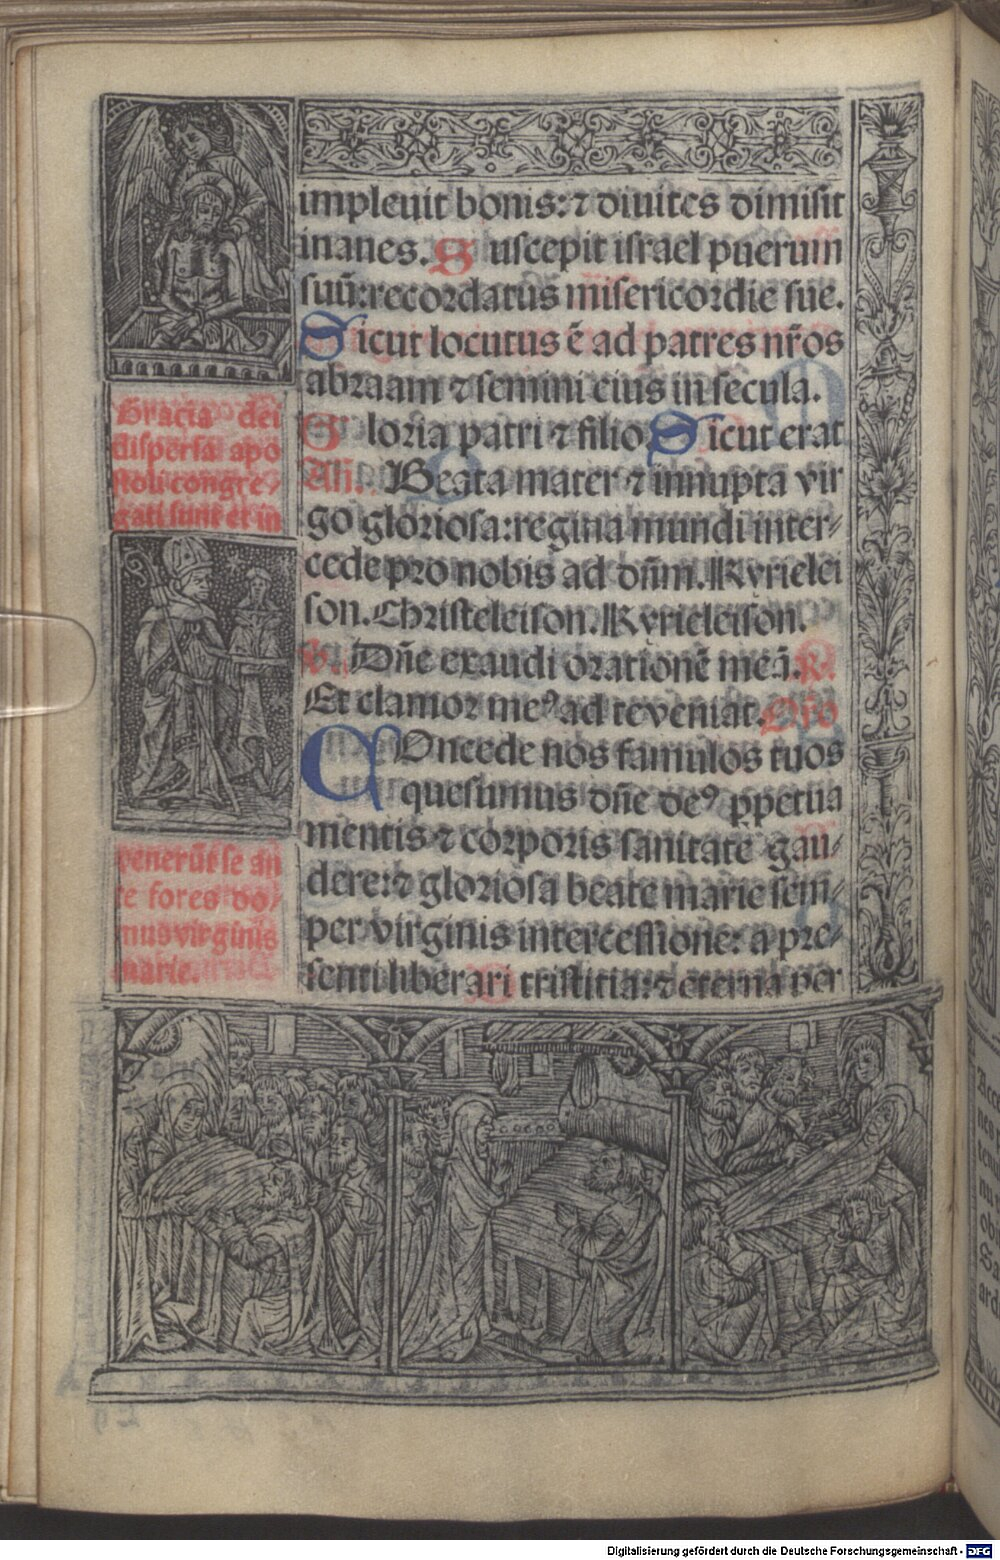 impleuit bonis: ⁊ diuites dimisit
inanes. Suscepit israel puerum
suū: recordatus misericordie sue.
Sicut locutus ē ad patres nr̄os
abraam ⁊ semini eius in secula.
Gloria patri ⁊ filio Sicut erat
Añ. Beata mater ⁊ innupta vir
go gloriosa: regina mundi inter-
cede pro nobis ad dn̄m. Kyrielei
son. Christeleison. Kyrieleison.
V. Dn̄e exaudi orationē meā. R.
Et clamor meꝰ ad te veniat. Oro
COncede nos famulos tuos
quesumus dn̄e deꝰ ꝑpetua
mentis ⁊ corporis sanitate gau-
dere: ⁊ gloriosa beate marie sem-
per virginis intercessione: a pre-
senti liberari tristitia: ⁊ eterna per
Gracia dei
dispersi apo
stoli congre-
gati sunt et in
venerūt se an
te fores do-
mus virginis
marie.
Digitalisierung gefördert durch die Deutsche Forschungsgemeinschaft - DFG